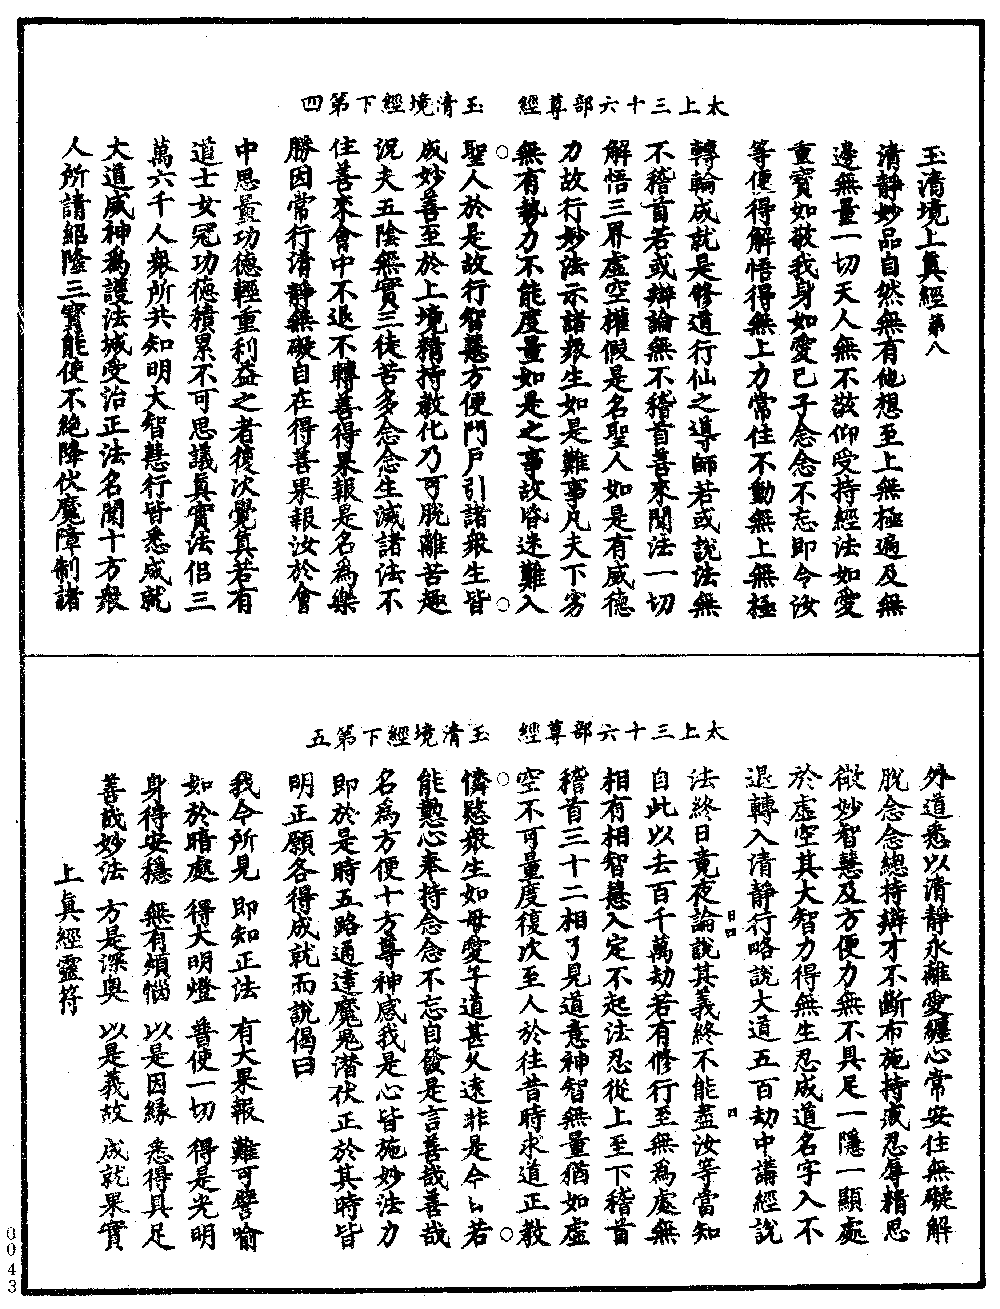 太上三十六部尊經　玉清境經下第四
玉清境上真經第八
清靜妙品自然無有他想至上無極遍及無
邊無量一切天人無不敬仰受持經法如愛
重寶如敬我身如愛已子念念不忘即令汝
等便得解悟得無上力常住不動無上無極
轉輪成就是修道行仙之導師若或說法無
不稽首若或辯論無不稽首善來聞法一切
解悟三界虛空權假是名聖人如是有威德
力故行妙法示諸衆生如是難事凡夫下劣
無有勢力不能度量如是之事故昏迷難入
聖人於是故行智慧方便門戶引諸衆生皆
成妙善至於上境精持教化乃可脫離苦趣
況夫五陰無實三徒苦多念念生滅諸法不
住善來會中不退不轉善得果報是名為樂
勝因常行清靜無礙自在得善果報汝於會
中思量功德輕重利益之者復次覺真若有
道士女冠功德積累不可思議真實法侶三
萬六千人衆所共知明大智慧行皆悉成就
大道威神為護法城受治正法名聞十方衆
人所請紹隆三寶能使不絕降伏魔障制諸
太上三十六部尊經　玉清境經下第五
外道悉以清靜永離愛纏心常安住無礙解
脫念念總持辯才不斷布施持戒忍辱精思
微妙智慧及方便力無不具足一隱一顯處
於虛空其大智力得無生忍成道名字入不
退轉入清靜行略說大道五百劫中講經說
法終日竟夜論說其義終不能盡汝等當知
自此以去百千萬劫若有修行至無為處無
相有相智慧入定不起法忍從上至下稽首
稽首三十二相了見道意神智無量猶如虛
空不可量度復次至人於往昔時求道正教
憐愍衆生如母愛子道甚久遠非是今日若
能懃心奉持念念不忘自發是言善哉善哉
名為方便十方尊神感我是心皆施妙法力
即於是時五路通達魔鬼潛伏正於其時皆
明正願各得成就而說偈曰
我今所見　即知正法　有大果報　難可譬喻
如於暗處　得大明燈　普使一切　得是光明
身得安穩　無有煩惱　以是因緣　悉得具足
善哉妙法　方是深奧　以是義故　成就果實
上真經靈符
0043